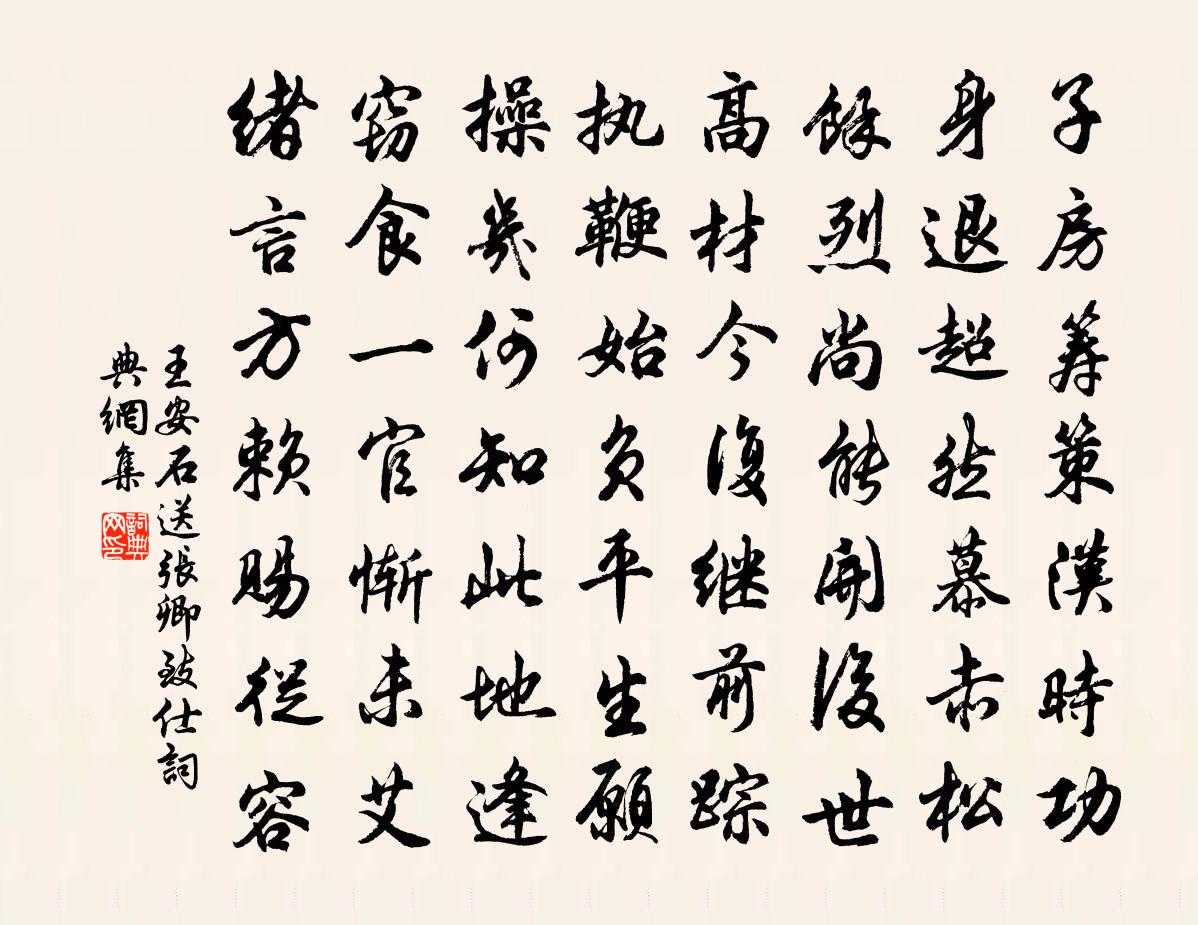 子房筹策漢時功
身退超然慕赤松
餘烈尚能開後世
高材今復继前踪
执鞭始负平生願
操几何知此地逢
窃食一官惭未艾
绪言方赖赐從容
王安石送張卿致仕詞
典網集
詞典
网印